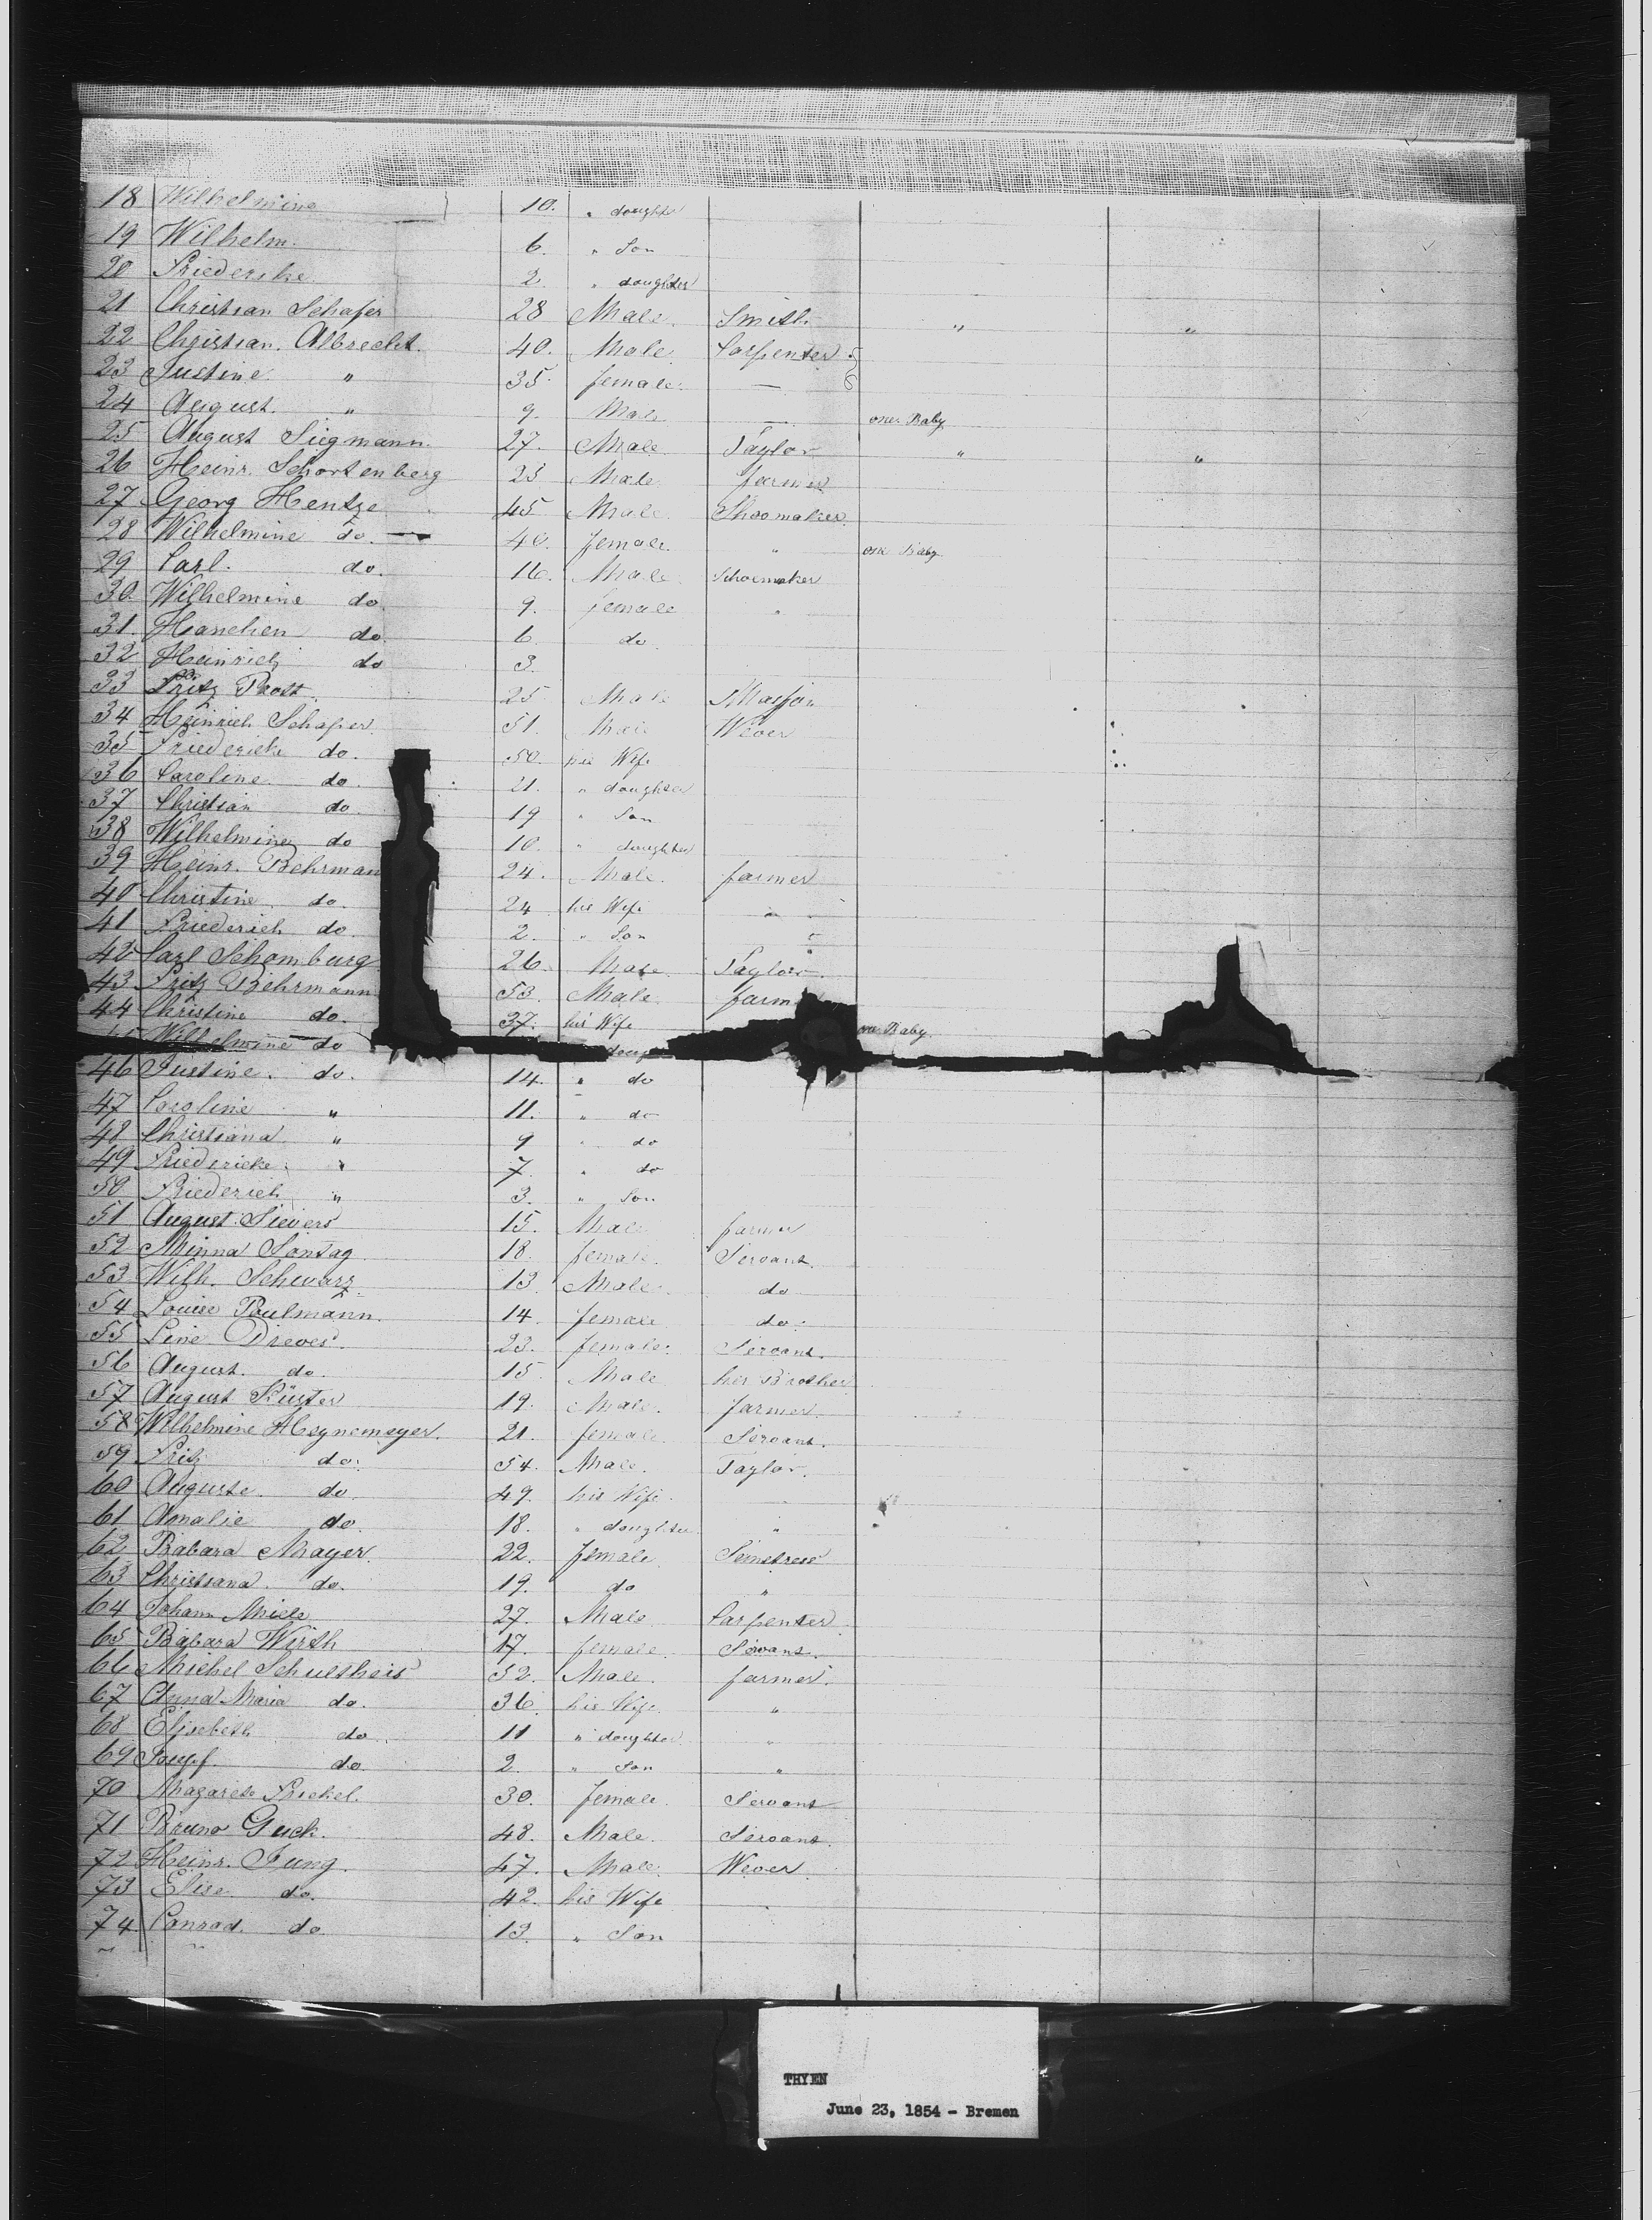 18 Wilhelmine 10. " daughter
19 Wilhelm. 6. " Son
20 Friederike 2. " daughter
21 Christian Schafer 28 Male. Smith " "
22 Christian. Albrecht. 40. Male Carpenter
23 Justine. " 35. female. —
24 August. " 9. Male — one Baby
25 August Siegmann. 27. Male. Taylor " "
26 Heinr. Schortenberg 23 Male farmer
27 Georg Hentze 45 Male. Shoomaker.
28 Wilhelmine do. 40. female. " one Baby
29 Carl. do. 16. Male. Schoemaker
30. Wilhelmine do. 9. female "
31. Hanchen do. 6 do
32 Heinrich do 3.
33 Fritz Prost. 25. Male Masson
34 Heinrich Schaper. 51. Male Wever
35 Friedericke do. 50 his Wife
36 Caroline do. 21. " daughter
37 Christian do. 19 " Son
38 Wilhelmine do 10. " daughter
39 Heinr. Behrman 24. Male. farmer
40 Christine. do. 24 his Wife "
41 Friederich do. 2. " Son
42 Carl Schomburg 26. Male. Taylor.
43 Fritz Behrmann 53. Male. farm
44 Christine do. 37. his Wife one Baby
Wilhelmine do
46 Justine. do. 14. " do
47 Caroline " 11. " do
48 Christiana " 9 " do
49 Friedericke " 7. " do
50 Friederich " 3. " Son
51 August Sievers 15. Male farmer
52 Minna Sontag 18. female. Servant.
53 Wilh. Schwarz 13 Male. do
54 Louise Poulmann. 14. female do.
55 Line Dreves. 23. female. Servant.
56 August. do. 15 Male her Brother
57 August Küster 19. Male. farmer.
58 Wilhelmine Heynemeyer. 21. female Servant.
59 Fritz do. 54. Male. Taylor.
60 Auguste. do. 49. his Wife. —
61 Amalie do. 18. " daughter "
62 Babara Mayer. 22. female Semstress
63 Christiana. do. 19. do "
64 Johann Miele 27. Male Carpenter
65 Babara Wirth 17. female. Servant.
66 Michel Schultheis 52. Male. farmer.
67 Anna Maria do. 36. his Wife. "
68 Elisebeth do. 11 " daughter "
69 do. 2. " Son "
70 Magarete 30. female. Servant
71 Bruno Guck. 48. Male. Servant.
72 Heinr. Jung. 47. Male. Wever
73 Elise do. 42. his Wife
74 Conrad. do 13. " Son
THYEN
June 23, 1854 - Bremen